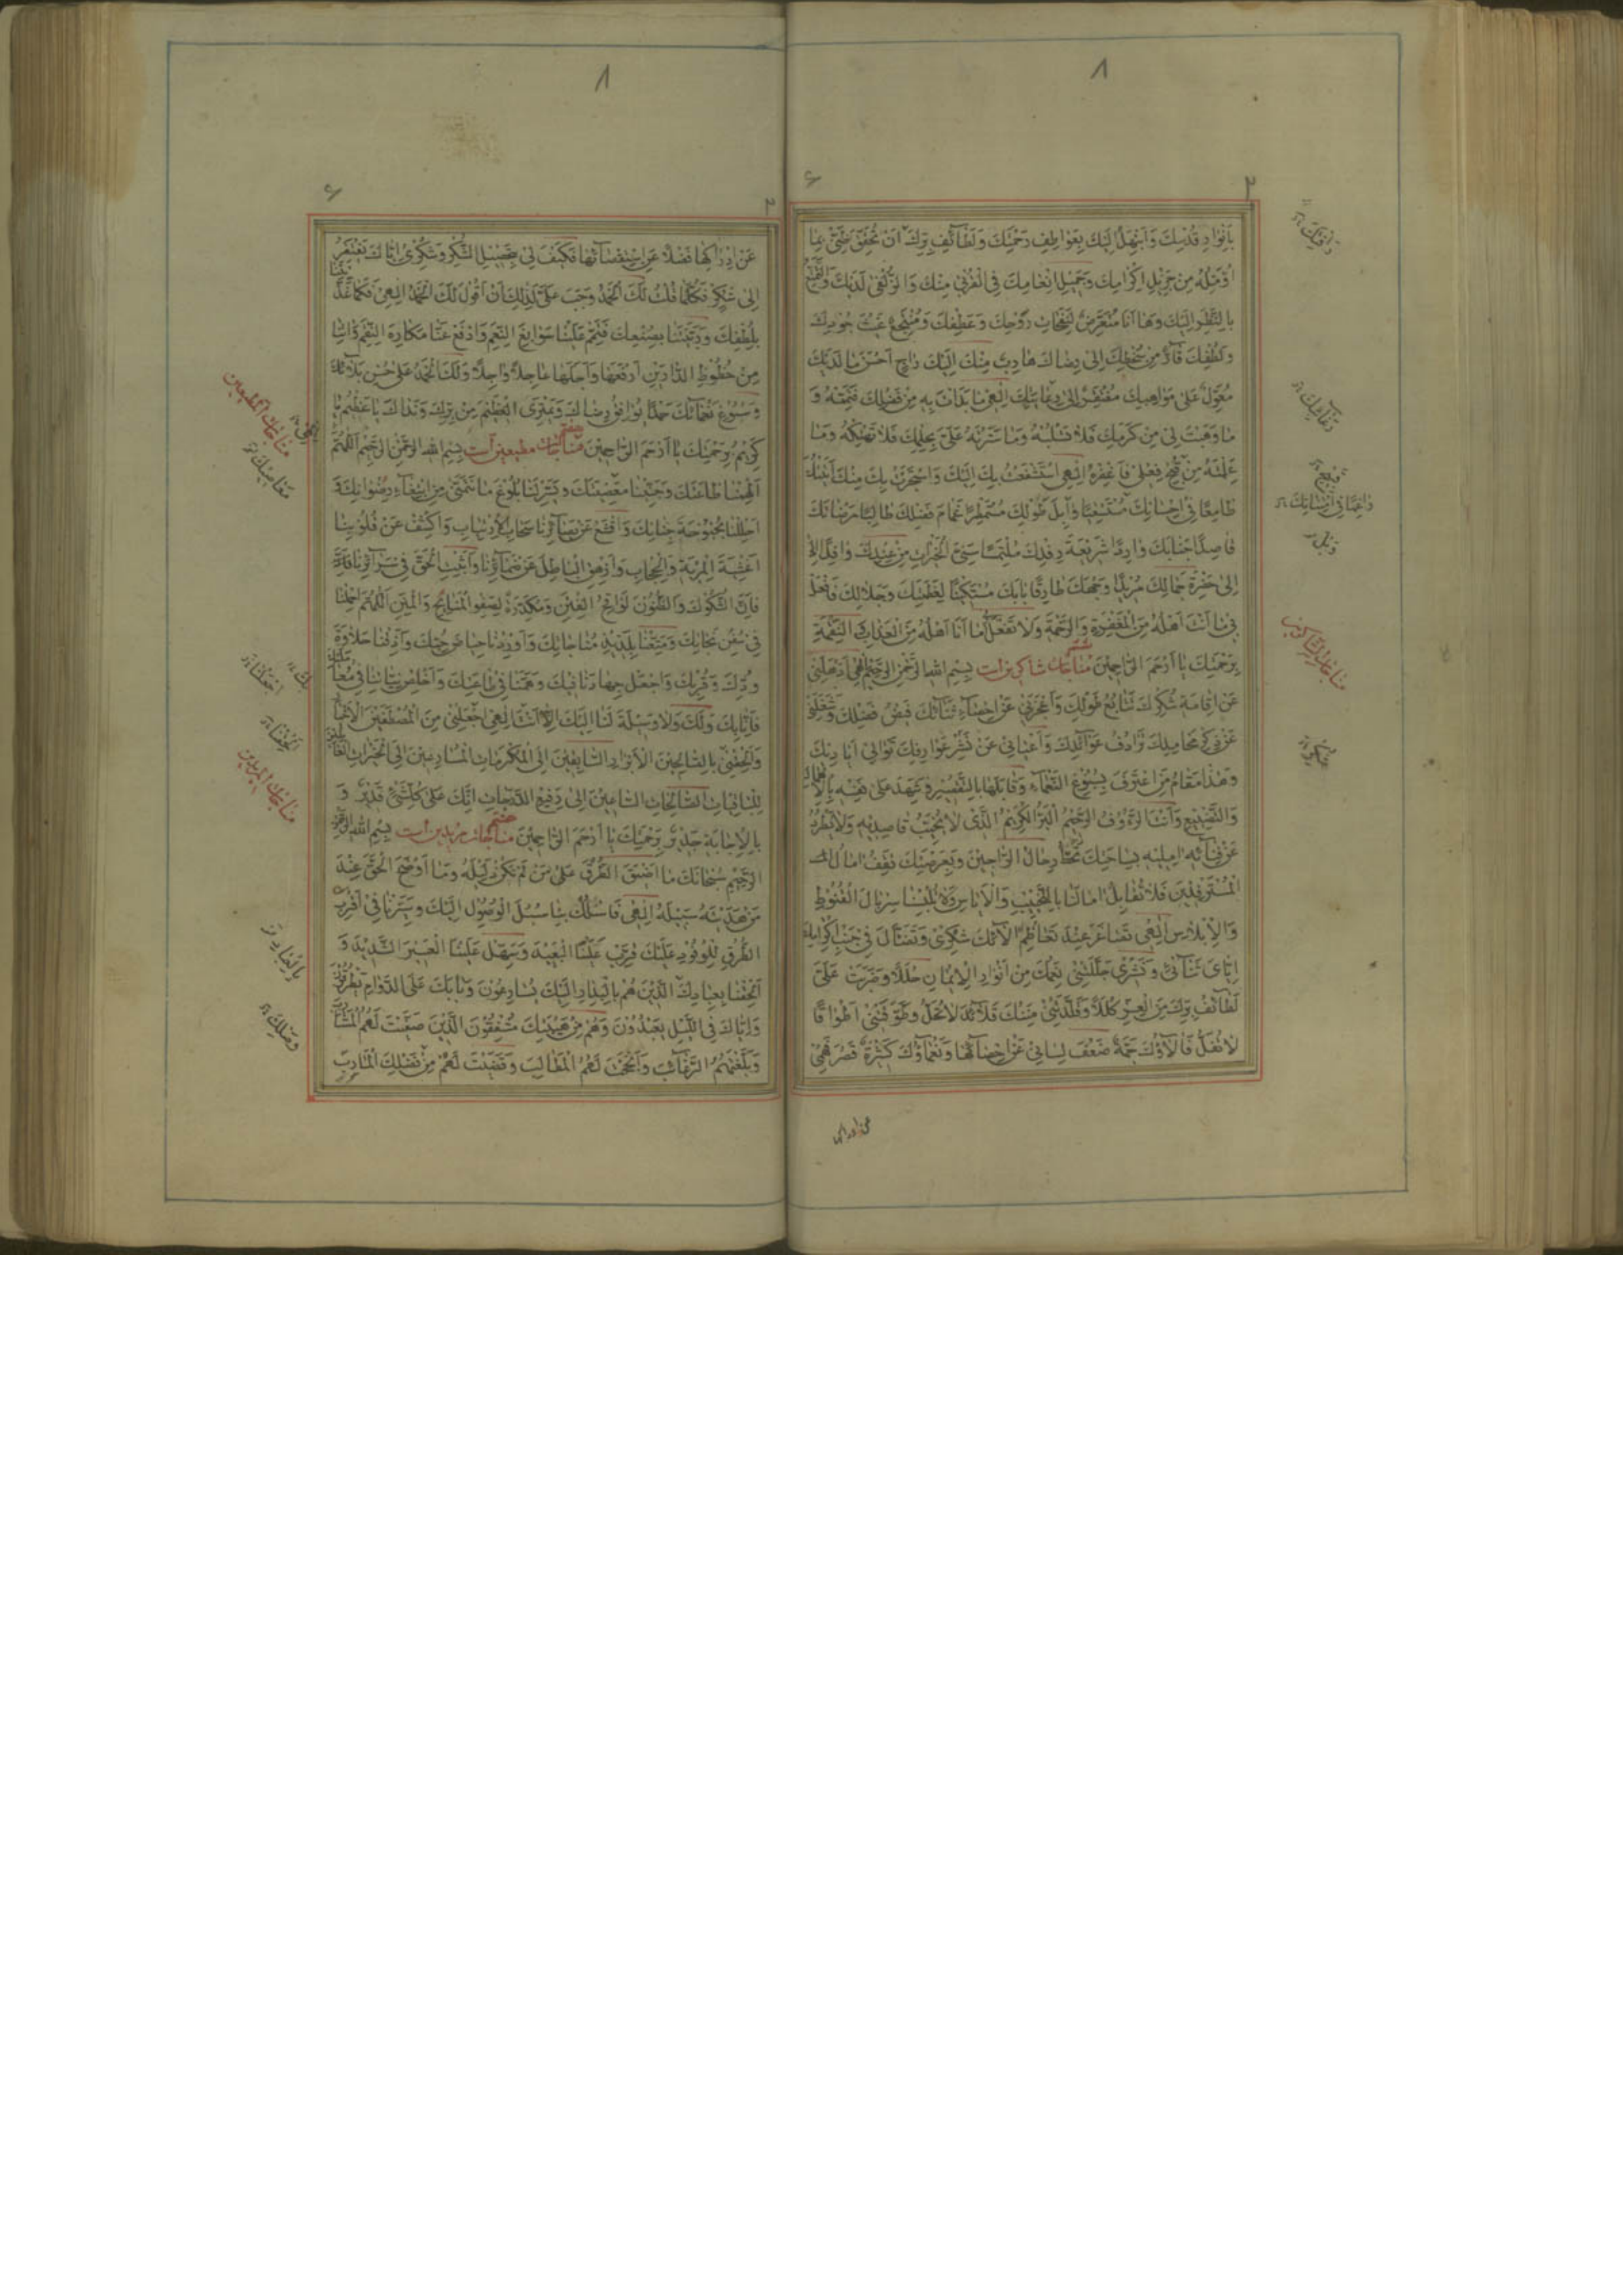 ٨
٢
بِاَنْوَارِ قُدْسِكَ وَاَبْتَهِلُ اِلَيْكَ بِعَوَاطِفِ رَحْمَتِكَ وَلَطَآئِفِ بِرِّكَ اَنْ تُحَقِّقَ ظَنِّيْ بِمَا
اُؤَمِّلُهُ مِنْ جَزِيْلِ اِكْرَامِكَ وَجَمِيْلِ اِنْعَامِكَ فِي الْقُرْبٰى مِنْكَ وَالزُّلْفٰى لَدَيْكَ وَالتَّمَتُّعِ
بِالنَّظَرِ اِلَيْكَ وَهَا اَنَا مُتَعَرِّضٌ لِنَفَحَاتِ رَوْحِكَ وَعَطْفِكَ وَمُنْتَجِعٌ غَيْثَ جُوْدِكَ
وَلُطْفِكَ فَآرٌّ مِنْ سَخَطِكَ اِلٰى رِضَاكَ هَارِبٌ مِنْكَ اِلَيْكَ رَاجٍ اَحْسَنَ مَا لَدَيْكَ
مُعَوِّلٌ عَلٰى مَوَاهِبِكَ مُفْتَقِرٌ اِلٰى رِعَايَتِكَ اِلٰهِيْ مَا بَدَاْتَ بِهِ مِنْ فَضْلِكَ فَتَمِّمْهُ وَ
مَا وَهَبْتَ لِيْ مِنْ كَرَمِكَ فَلَا تَسْلُبْهُ وَمَا سَتَرْتَهُ عَلَيَّ بِحِلْمِكَ فَلَا تَهْتِكْهُ وَمَا
عَلِمْتَهُ مِنْ قُبْحِ فِعْلِيْ فَاغْفِرْهُ اِلٰهِيْ اسْتَشْفَعْتُ بِكَ اِلَيْكَ وَاسْتَجَرْتُ بِكَ مِنْكَ اَتَيْتُكَ
طَامِعًا فِيْ اِحْسَانِكَ مُسْتَسْقِيًا وَابِلَ طَوْلِكَ مُسْتَمْطِرًا غَمَامَ فَضْلِكَ طَالِبًا مَرْضَاتَكَ
قَاصِدًا جَنَابَكَ وَارِدًا شَرِيْعَةَ رِفْدِكَ مُلْتَمِسًا سَنِيَّ الْخَيْرَاتِ مِنْ عِنْدِكَ وَافِدًا
اِلٰى حَضْرَةِ جَمَالِكَ مُرِيْدًا وَجْهَكَ طَارِقًا بَابَكَ مُسْتَكِيْنًا لِعَظَمَتِكَ وَجَلَالِكَ فَافْعَلْ
بِيْ مَا اَنْتَ اَهْلُهُ مِنَ الْمَغْفِرَةِ وَالرَّحْمَةِ وَلَا تَفْعَلْ بِيْ مَا اَنَا اَهْلُهُ مِنَ الْعَذَابِ وَالنِّقْمَةِ
بِرَحْمَتِكَ يَا اَرْحَمَ الرَّاحِمِيْنَ مناجات شاكرين است بِسْمِ اللهِ الرَّحْمٰنِ الرَّحِيْمِ اِلٰهِيْ اَذْهَلَنِيْ
عَنْ اِقَامَةِ شُكْرِكَ تَتَابُعُ طَوْلِكَ وَاَعْجَزَنِيْ عَنْ اِحْصَاءِ ثَنَآئِكَ فَيْضُ فَضْلِكَ وَشَغَلَنِيْ
عَنْ ذِكْرِ مَحَامِدِكَ تَرَادُفُ عَوَآئِدِكَ وَاَعْيَانِيْ عَنْ نَشْرِ عَوَارِفِكَ تَوَالِيْ اَيَادِيْكَ
وَهٰذَا مَقَامُ مَنِ اعْتَرَفَ بِسُبُوْغِ النَّعْمَاءِ وَقَابَلَهَا بِالتَّقْصِيْرِ وَشَهِدَ عَلٰى نَفْسِهِ بِالْاِهْمَالِ
وَالتَّضْيِيْعِ وَاَنْتَ الرَّءُوْفُ الرَّحِيْمُ الْبَرُّ الْكَرِيْمُ الَّذِيْ لَا يُخَيِّبُ قَاصِدِيْهِ وَلَا يَطْرُدُ
عَنْ فِنَآئِهِ اٰمِلِيْهِ بِسَاحَتِكَ تَحُطُّ رِحَالُ الرَّاجِيْنَ وَبِعَرْصَتِكَ تَقِفُ اٰمَالُ
الْمُسْتَرْفِدِيْنَ فَلَا تُقَابِلْ اٰمَالَنَا بِالتَّخْيِيْبِ وَالْاِيَاسِ وَلَا تُلْبِسْنَا سِرْبَالَ الْقُنُوْطِ
وَالْاِبْلَاسِ اِلٰهِيْ تَصَاغَرَ عِنْدَ تَعَاظُمِ اٰلَآئِكَ شُكْرِيْ وَتَضَآءَلَ فِيْ جَنْبِ اِكْرَامِكَ
اِيَّايَ ثَنَآئِيْ وَنَشْرِيْ جَلَّلَتْنِيْ نِعَمُكَ مِنْ اَنْوَارِ الْاِيْمَانِ حُلَلًا وَضَرَبَتْ عَلَيَّ
لَطَآئِفُ بِرِّكَ مِنَ الْعِزِّ كِلَلًا وَقَلَّدَتْنِيْ مِنَنُكَ قَلَآئِدَ لَا تُحَلُّ وَطَوَّقَتْنِيْ اَطْوَاقًا
لَا تُفَلُّ فَاٰلَآؤُكَ جَمَّةٌ ضَعُفَ لِسَانِيْ عَنْ اِحْصَآئِهَا وَنَعْمَآؤُكَ كَثِيْرَةٌ قَصُرَ فَهْمِيْ
رَاْفَتِكَ
قَبِيْحِ
مناجات الشاكرين
عن ادراكها
٨
٢
عَنْ اِدْرَاكِهَا فَضْلًا عَنِ اسْتِقْصَآئِهَا فَكَيْفَ لِيْ بِتَحْصِيْلِ الشُّكْرِ وَشُكْرِيْ اِيَّاكَ يَفْتَقِرُ
اِلٰى شُكْرٍ فَكُلَّمَا قُلْتُ لَكَ الْحَمْدُ وَجَبَ عَلَيَّ لِذٰلِكَ اَنْ اَقُوْلَ لَكَ الْحَمْدُ اِلٰهِيْ فَكَمَا غَذَّيْتَنَا
بِلُطْفِكَ وَرَبَّيْتَنَا بِصُنْعِكَ فَتَمِّمْ عَلَيْنَا سَوَابِغَ النِّعَمِ وَادْفَعْ عَنَّا مَكَارِهَ النِّقَمِ وَاٰتِنَا
مِنْ حُظُوْظِ الدَّارَيْنِ اَرْفَعَهَا وَاَجَلَّهَا عَاجِلًا وَاٰجِلًا وَلَكَ الْحَمْدُ عَلٰى حُسْنِ بَلَآئِكَ
وَسُبُوْغِ نَعْمَآئِكَ حَمْدًا يُوَافِقُ رِضَاكَ وَيَمْتَرِى الْعَظِيْمَ مِنْ بِرِّكَ وَنَدَاكَ يَا عَظِيْمُ يَا
كَرِيْمُ بِرَحْمَتِكَ يَا اَرْحَمَ الرَّاحِمِيْنَ مناجات مطيعين است بِسْمِ اللهِ الرَّحْمٰنِ الرَّحِيْمِ اَللّٰهُمَّ
اَلْهِمْنَا طَاعَتَكَ وَجَنِّبْنَا مَعْصِيَتَكَ وَيَسِّرْ لَنَا بُلُوْغَ مَا نَتَمَنّٰى مِنِ ابْتِغَآءِ رِضْوَانِكَ وَ
اَحْلِلْنَا بُحْبُوْحَةَ جِنَانِكَ وَاقْشَعْ عَنْ بَصَآئِرِنَا سَحَابَ الْاِرْتِيَابِ وَاكْشِفْ عَنْ قُلُوْبِنَا
اَغْشِيَةَ الْمِرْيَةِ وَالْحِجَابِ وَاَزْهِقِ الْبَاطِلَ عَنْ ضَمَآئِرِنَا وَاَثْبِتِ الْحَقَّ فِيْ سَرَآئِرِنَا
فَاِنَّ الشُّكُوْكَ وَالظُّنُوْنَ لَوَاقِحُ الْفِتَنِ وَمُكَدِّرَةٌ لِصَفْوِ الْمَنَايِحِ وَالْمِنَنِ اَللّٰهُمَّ احْمِلْنَا
فِيْ سُفُنِ نَجَاتِكَ وَمَتِّعْنَا بِلَذِيْذِ مُنَاجَاتِكَ وَاَوْرِدْنَا حِيَاضَ حُبِّكَ وَاَذِقْنَا حَلَاوَةَ
وُدِّكَ وَقُرْبِكَ وَاجْعَلْ جِهَادَنَا فِيْكَ وَهَمَّنَا فِيْ طَاعَتِكَ وَاَخْلِصْ نِيَّاتِنَا فِيْ مُعَامَلَتِكَ
فَاِنَّا بِكَ وَلَكَ وَلَا وَسِيْلَةَ لَنَا اِلَيْكَ اِلَّا اَنْتَ اِلٰهِيْ اجْعَلْنِيْ مِنَ الْمُصْطَفَيْنَ الْاَخْيَارِ
وَاَلْحِقْنِيْ بِالصَّالِحِيْنَ الْاَبْرَارِ السَّابِقِيْنَ اِلَى الْمَكْرُمَاتِ الْمُسَارِعِيْنَ اِلَى الْخَيْرَاتِ الْعَامِلِيْنَ
لِلْبَاقِيَاتِ الصَّالِحَاتِ السَّاعِيْنَ اِلٰى رَفِيْعِ الدَّرَجَاتِ اِنَّكَ عَلٰى كُلِّ شَيْءٍ قَدِيْرٌ وَ
بِالْاِجَابَةِ جَدِيْرٌ بِرَحْمَتِكَ يَا اَرْحَمَ الرَّاحِمِيْنَ مناجات مريدين است بِسْمِ اللهِ الرَّحْمٰنِ
الرَّحِيْمِ سُبْحَانَكَ مَا اَضْيَقَ الطُّرُقَ عَلٰى مَنْ لَمْ تَكُنْ دَلِيْلَهُ وَمَا اَوْضَحَ الْحَقَّ عِنْدَ
مَنْ هَدَيْتَهُ سَبِيْلَهُ اِلٰهِيْ فَاسْلُكْ بِنَا سُبُلَ الْوُصُوْلِ اِلَيْكَ وَسَيِّرْنَا فِيْ اَقْرَبِ
الطُّرُقِ لِلْوُفُوْدِ عَلَيْكَ قَرِّبْ عَلَيْنَا الْبَعِيْدَ وَسَهِّلْ عَلَيْنَا الْعَسِيْرَ الشَّدِيْدَ وَ
اَلْحِقْنَا بِعِبَادِكَ الَّذِيْنَ هُمْ بِالْبِدَارِ اِلَيْكَ يُسَارِعُوْنَ وَبَابَكَ عَلَى الدَّوَامِ يَطْرُقُوْنَ
وَاِيَّاكَ فِي اللَّيْلِ يَعْبُدُوْنَ وَهُمْ مِنْ هَيْبَتِكَ مُشْفِقُوْنَ الَّذِيْنَ صَفَّيْتَ لَهُمُ الْمَشَارِبَ
وَبَلَّغْتَهُمُ الرَّغَآئِبَ وَاَنْجَحْتَ لَهُمُ الْمَطَالِبَ وَقَضَيْتَ لَهُمْ مِنْ فَضْلِكَ الْمَاٰرِبَ
مناجات المطيعين
مَعَاصِيْكَ
مناجات المريدين